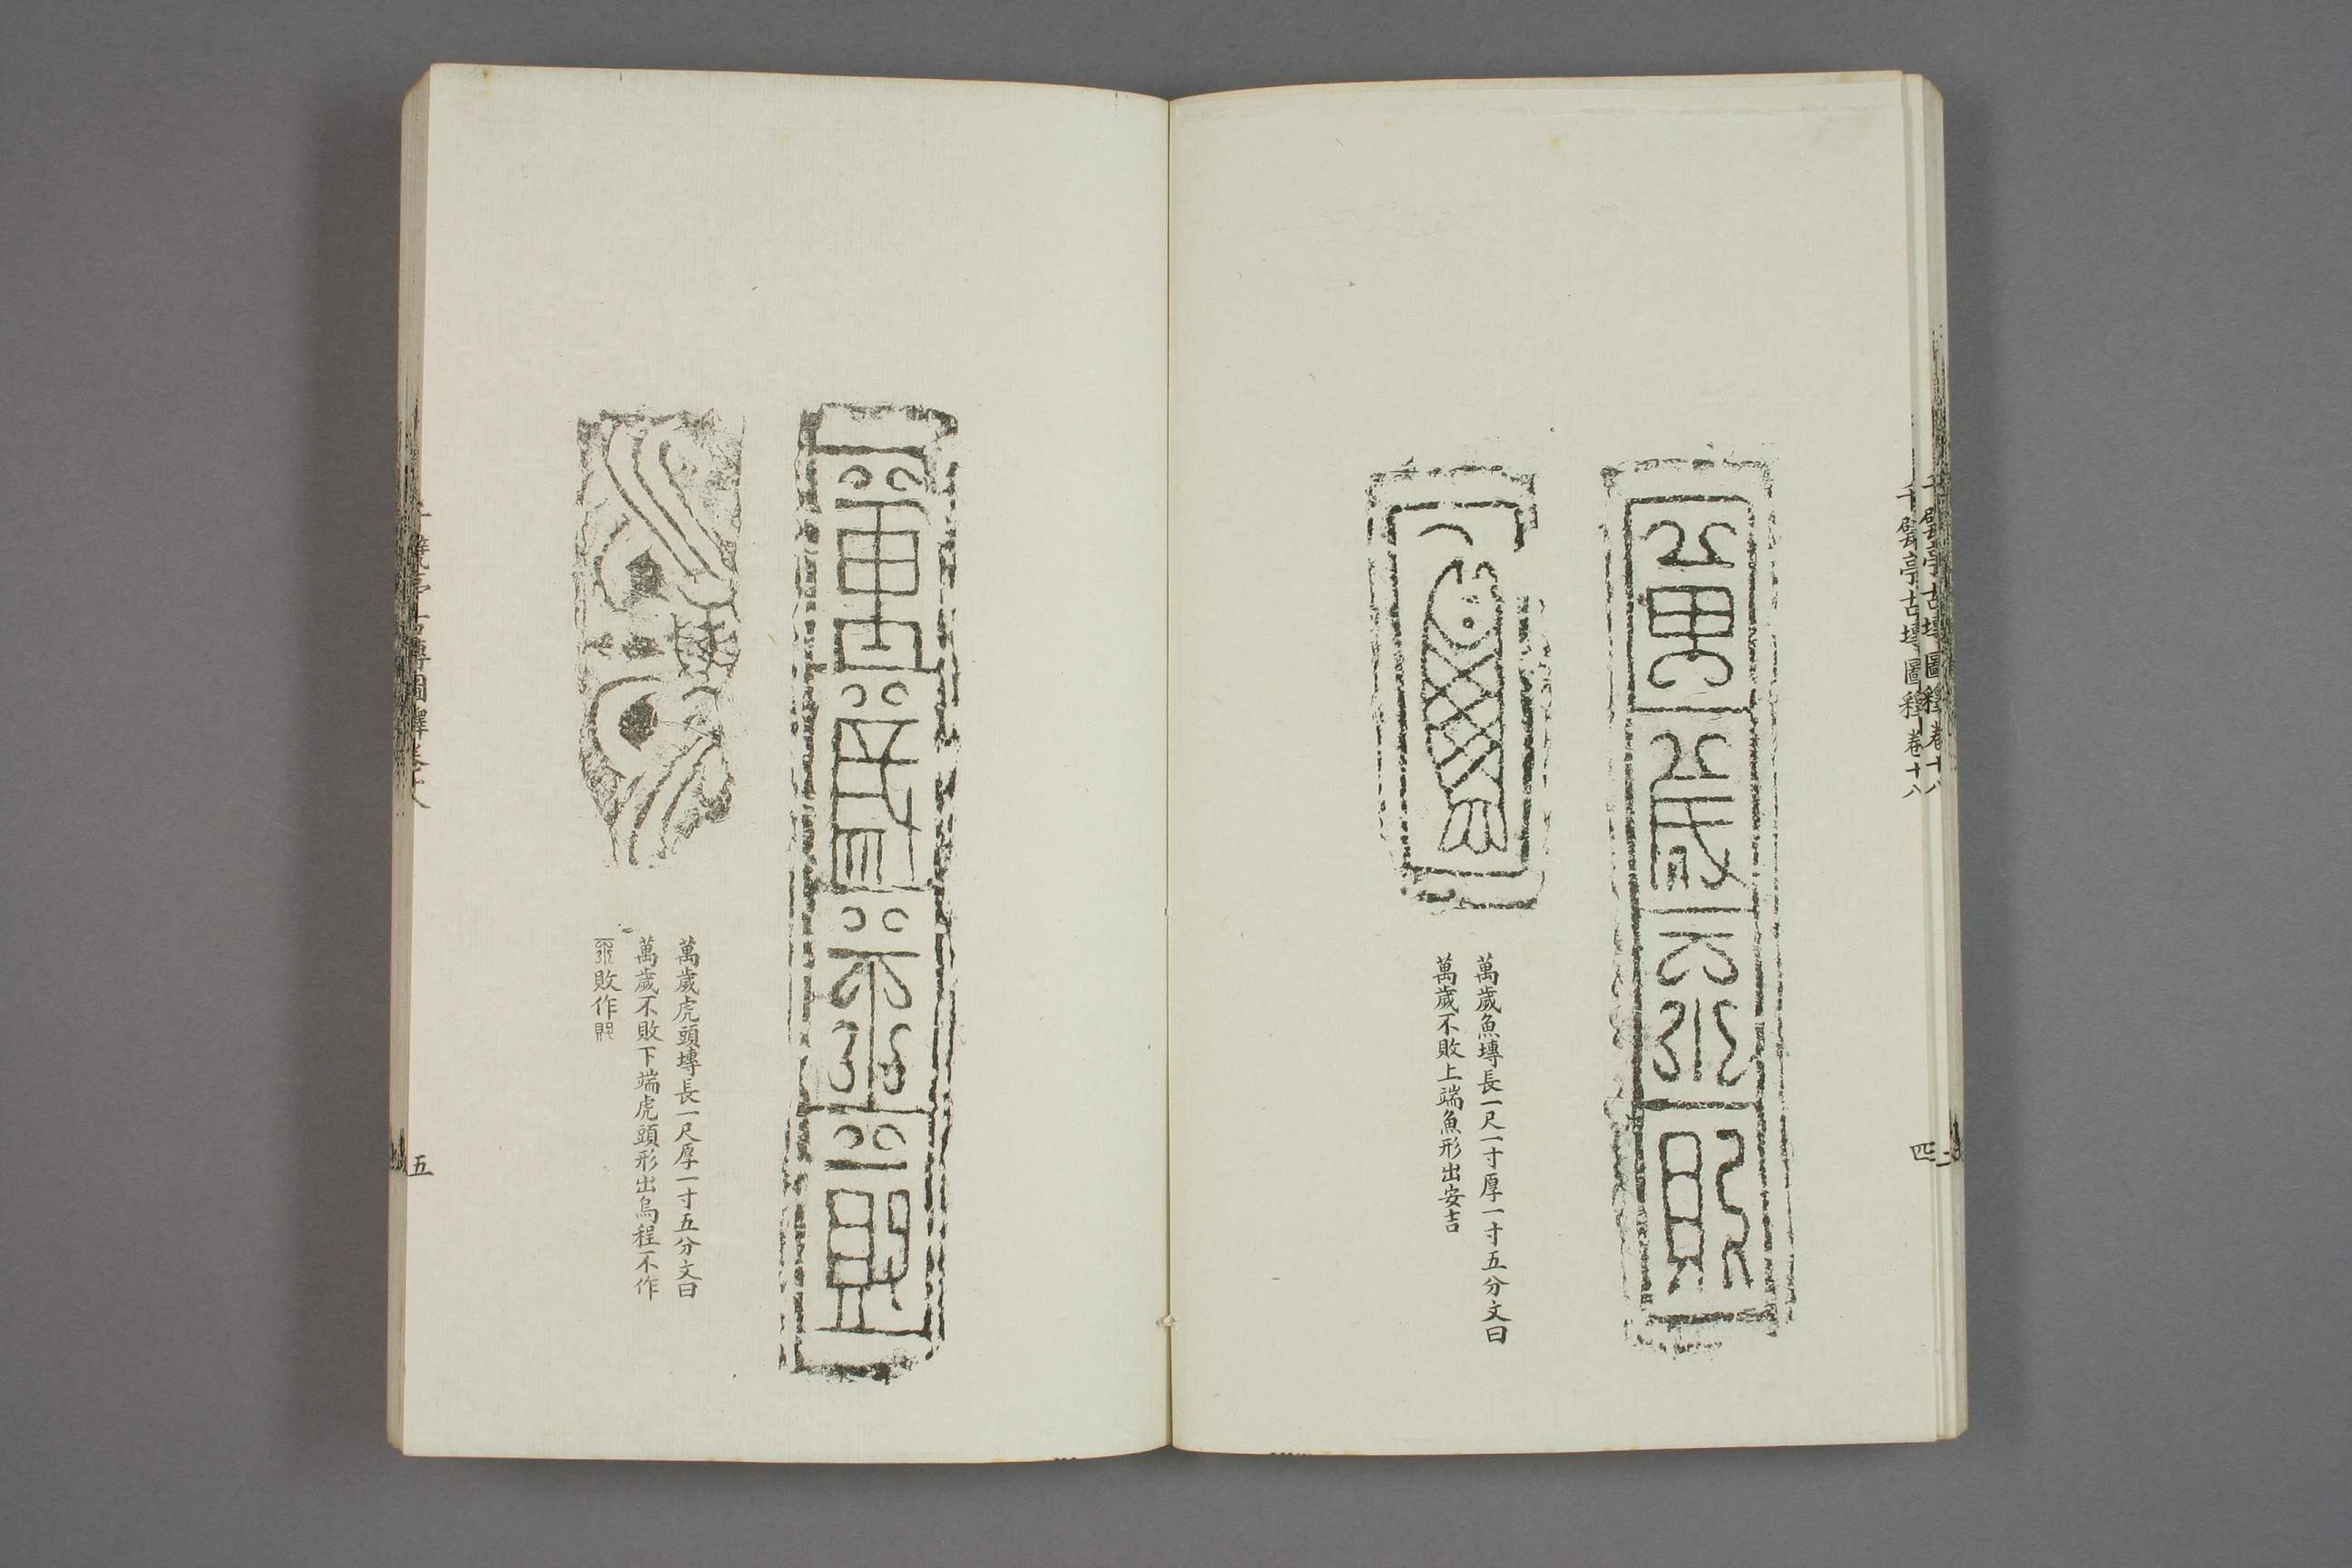 千甓亭古塼圖釋卷十八
四
萬歲不敗
萬歲魚塼長一尺一寸厚一寸五分文曰
萬歲不敗上端魚形出安吉
萬歲不敗
萬歲虎頭塼長一尺厚一寸五分文曰
萬歲不敗下端虎頭形出烏程不作
敗作
千甓亭古塼圖釋卷十八
五